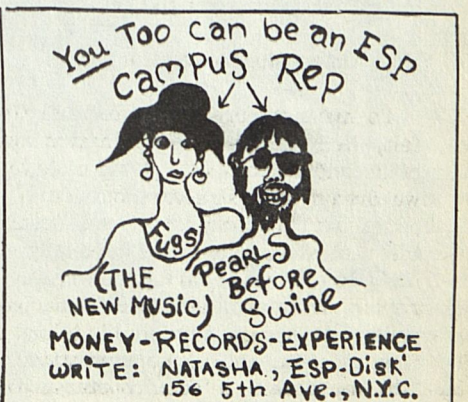 You Too can be an ESP
Campus Rep
Fugs
(THE
NEW MUSIC)
Pearls
Before
Swine
MONEY-RECORDS-EXPERIENCE
WRITE: NATASHA, ESP-DISK'
156 5th Ave., N.Y.C.